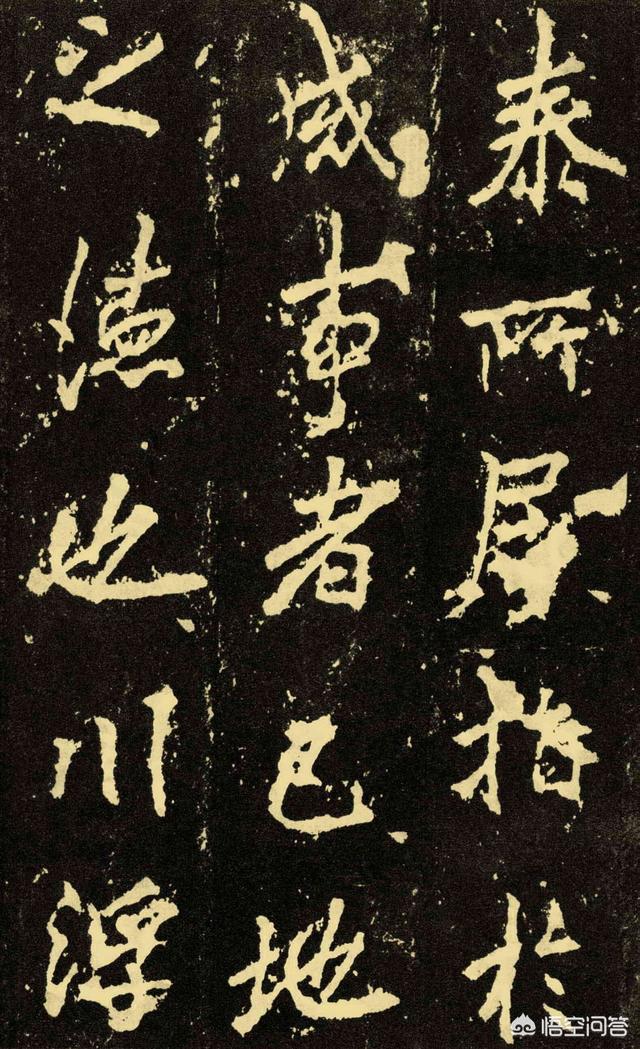 泰所居指於
成事者已地
之德也川浮
悟空问答